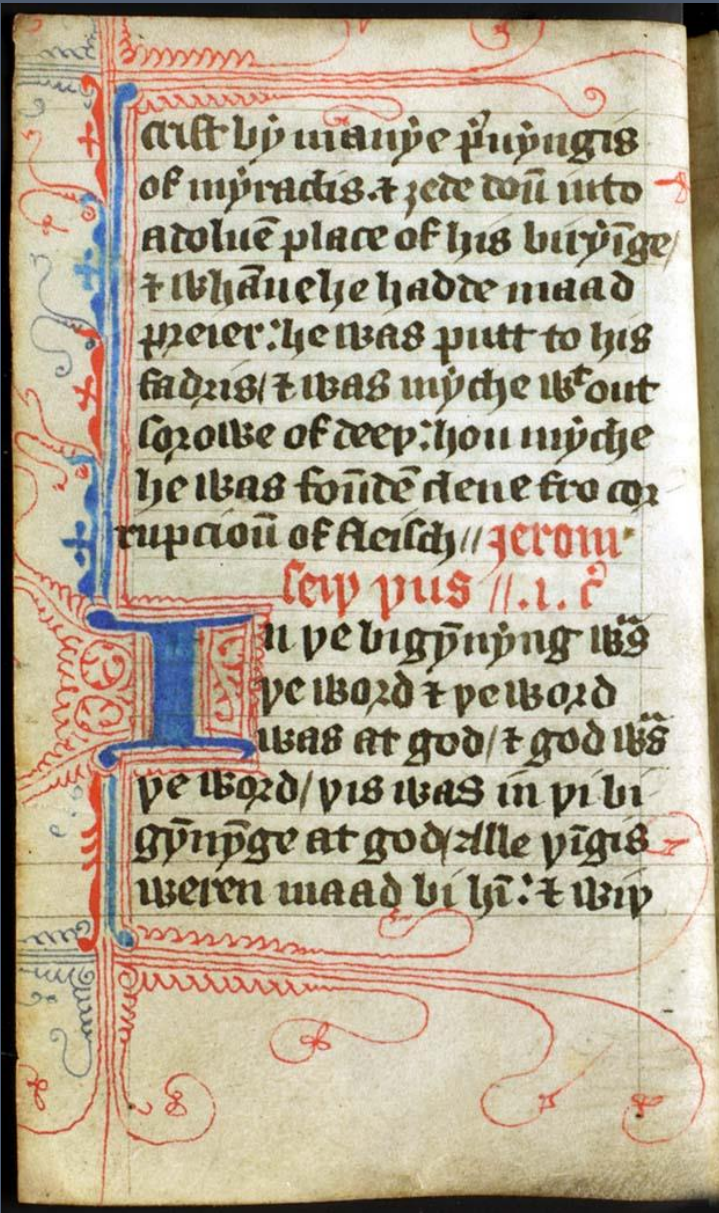 crist bẏ manẏe p̄uẏngis
of mẏraclis. ⁊ ȝede doū into
a doluē place of his birẏīge/
⁊ whāne he hadde maad
preier: he was putt to his
fadris/ ⁊ was mẏche wᵗout
sorowe of deeþ: hou mẏche
he was foūdē clene fro cor
rupcioū of fleisch // Jerom
seiþ þus //.1. c̄
In þe bigẏ̄nẏng wᵃs
þe word ⁊ þe word
was at god/ ⁊ god wᵃs
þe word/ þis was in þi bi
gẏ̄nẏ̄ge at god/ Alle þīgis
weren maad bi hī: ⁊ wiþ